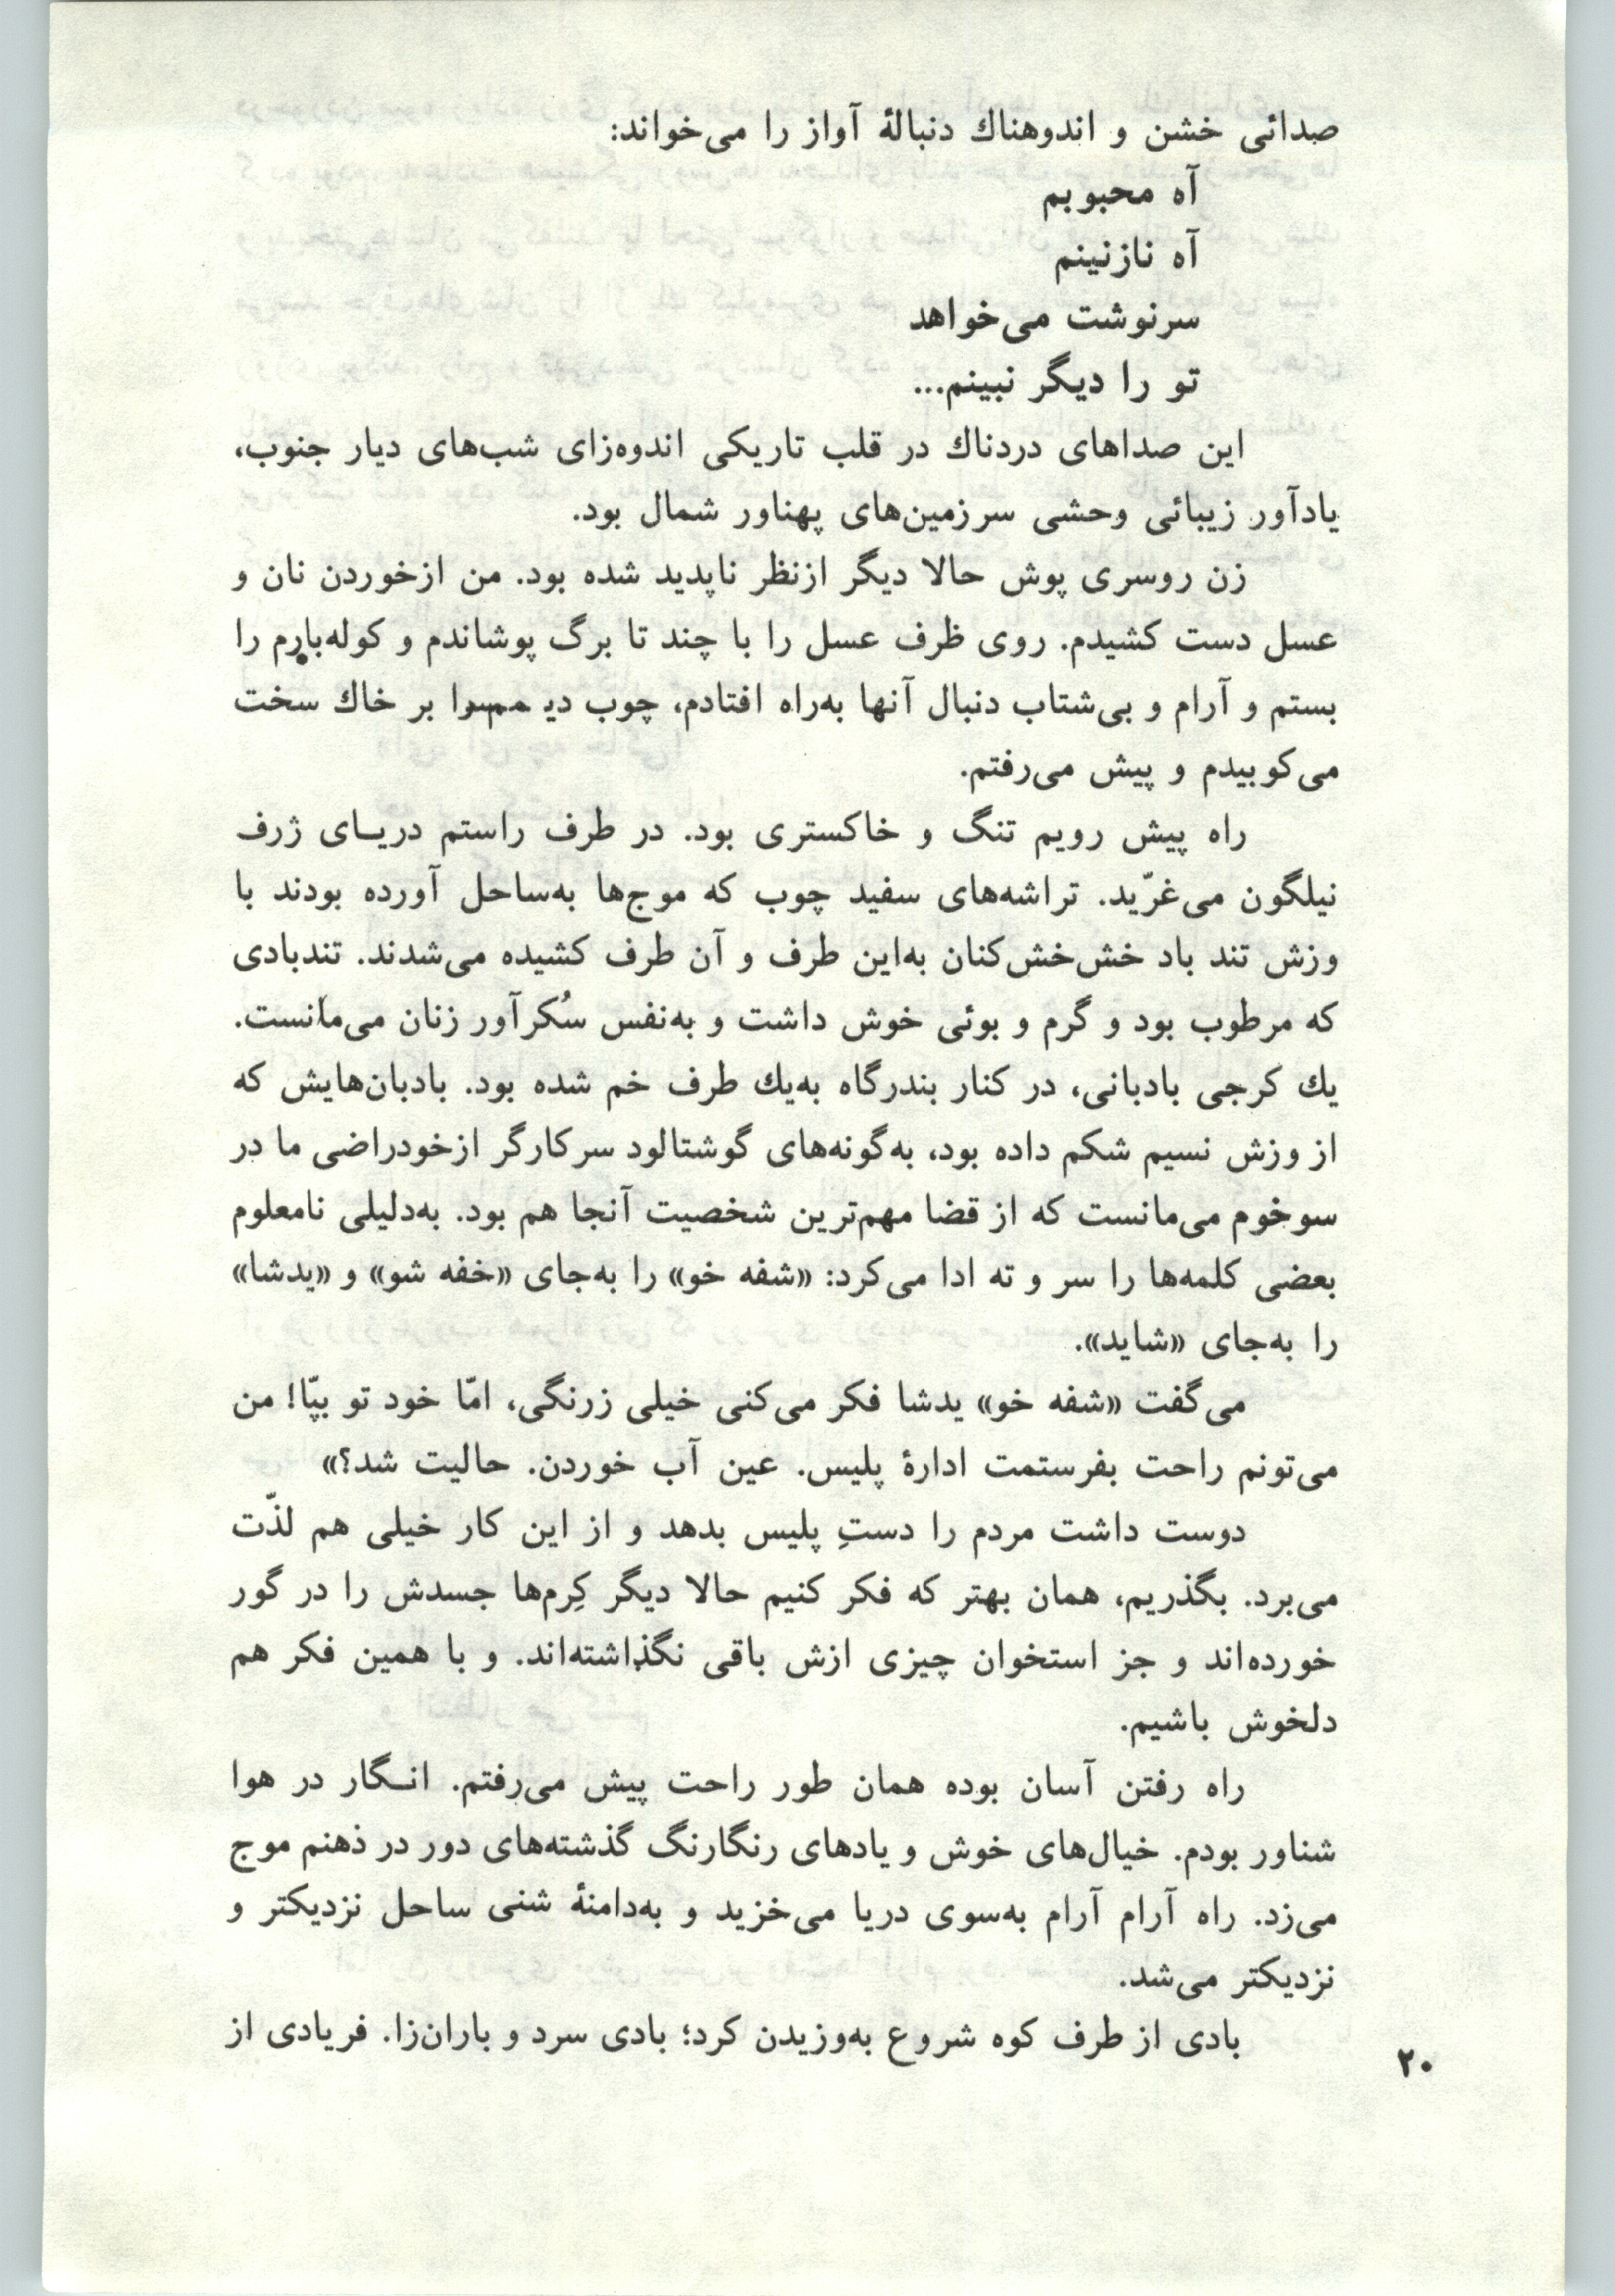 صدائی خشن و اندوهناك دنبالهٔ آواز را می‌خواند:
آه محبوبم
آه نازنینم
سرنوشت می‌خواهد
تو را دیگر نبینم...
این صداهای دردناك در قلب تاریکی اندوه‌زای شب‌های دیار جنوب،
یادآور زیبائی وحشی سرزمین‌های پهناور شمال بود.
زن روسری پوش حالا دیگر ازنظر ناپدید شده بود. من ازخوردن نان و
عسل دست کشیدم. روی ظرف عسل را با چند تا برگ پوشاندم و کوله‌بارم را
بستم و آرام و بی‌شتاب دنبال آنها به‌راه افتادم، چوب بر خاك سخت
می‌کوبیدم و پیش می‌رفتم.
راه پیش رویم تنگ و خاکستری بود. در طرف راستم دریـای ژرف
نیلگون می‌غرّید. تراشه‌های سفید چوب که موج‌ها به‌ساحل آورده بودند با
وزش تند باد خش‌خش‌کنان به‌این طرف و آن طرف کشیده می‌شدند. تندبادی
که مرطوب بود و گرم و بوئی خوش داشت و به‌نفس سُکرآور زنان می‌مانست.
یك کرجی بادبانی، در کنار بندرگاه به‌یك طرف خم شده بود. بادبان‌هایش که
از وزش نسیم شکم داده بود، به‌گونه‌های گوشتالود سرکارگر ازخودراضی ما در
سوخوم می‌مانست که از قضا مهم‌ترین شخصیت آنجا هم بود. به‌دلیلی نامعلوم
بعضی کلمه‌ها را سر و ته ادا می‌کرد: «شفه خو» را به‌جای «خفه شو» و «یدشا»
را به‌جای «شاید».
می‌گفت «شفه خو» یدشا فکر می‌کنی خیلی زرنگی، امّا خود تو بپّا! من
می‌تونم راحت بفرستمت ادارهٔ پلیس. عین آب خوردن. حالیت شد؟»
دوست داشت مردم را دستِ پلیس بدهد و از این کار خیلی هم لذّت
می‌برد. بگذریم، همان بهتر که فکر کنیم حالا دیگر کِرم‌ها جسدش را در گور
خورده‌اند و جز استخوان چیزی ازش باقی نگذاشته‌اند. و با همین فکر هم
دلخوش باشیم.
راه رفتن آسان بوده همان طور راحت پیش می‌رفتم. انـگار در هوا
شناور بودم. خیال‌های خوش و یادهای رنگارنگ گذشته‌های دور در ذهنم موج
می‌زد. راه آرام آرام به‌سوی دریا می‌خزید و به‌دامنهٔ شنی ساحل نزدیکتر و
نزدیکتر می‌شد.
بادی از طرف کوه شروع به‌وزیدن کرد؛ بادی سرد و باران‌زا. فریادی از
۲۰